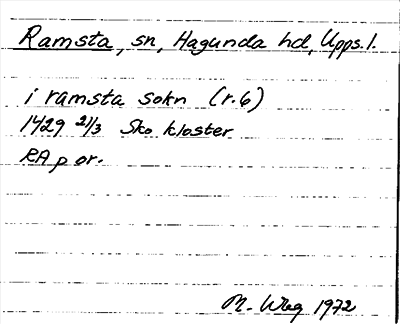 Ramsta, sn, Hagunda hd, Upps. l.
i ramsta sokn (r. 6)
1429 21/3 Sko kloster
RA p or.
M. Wbg 1972